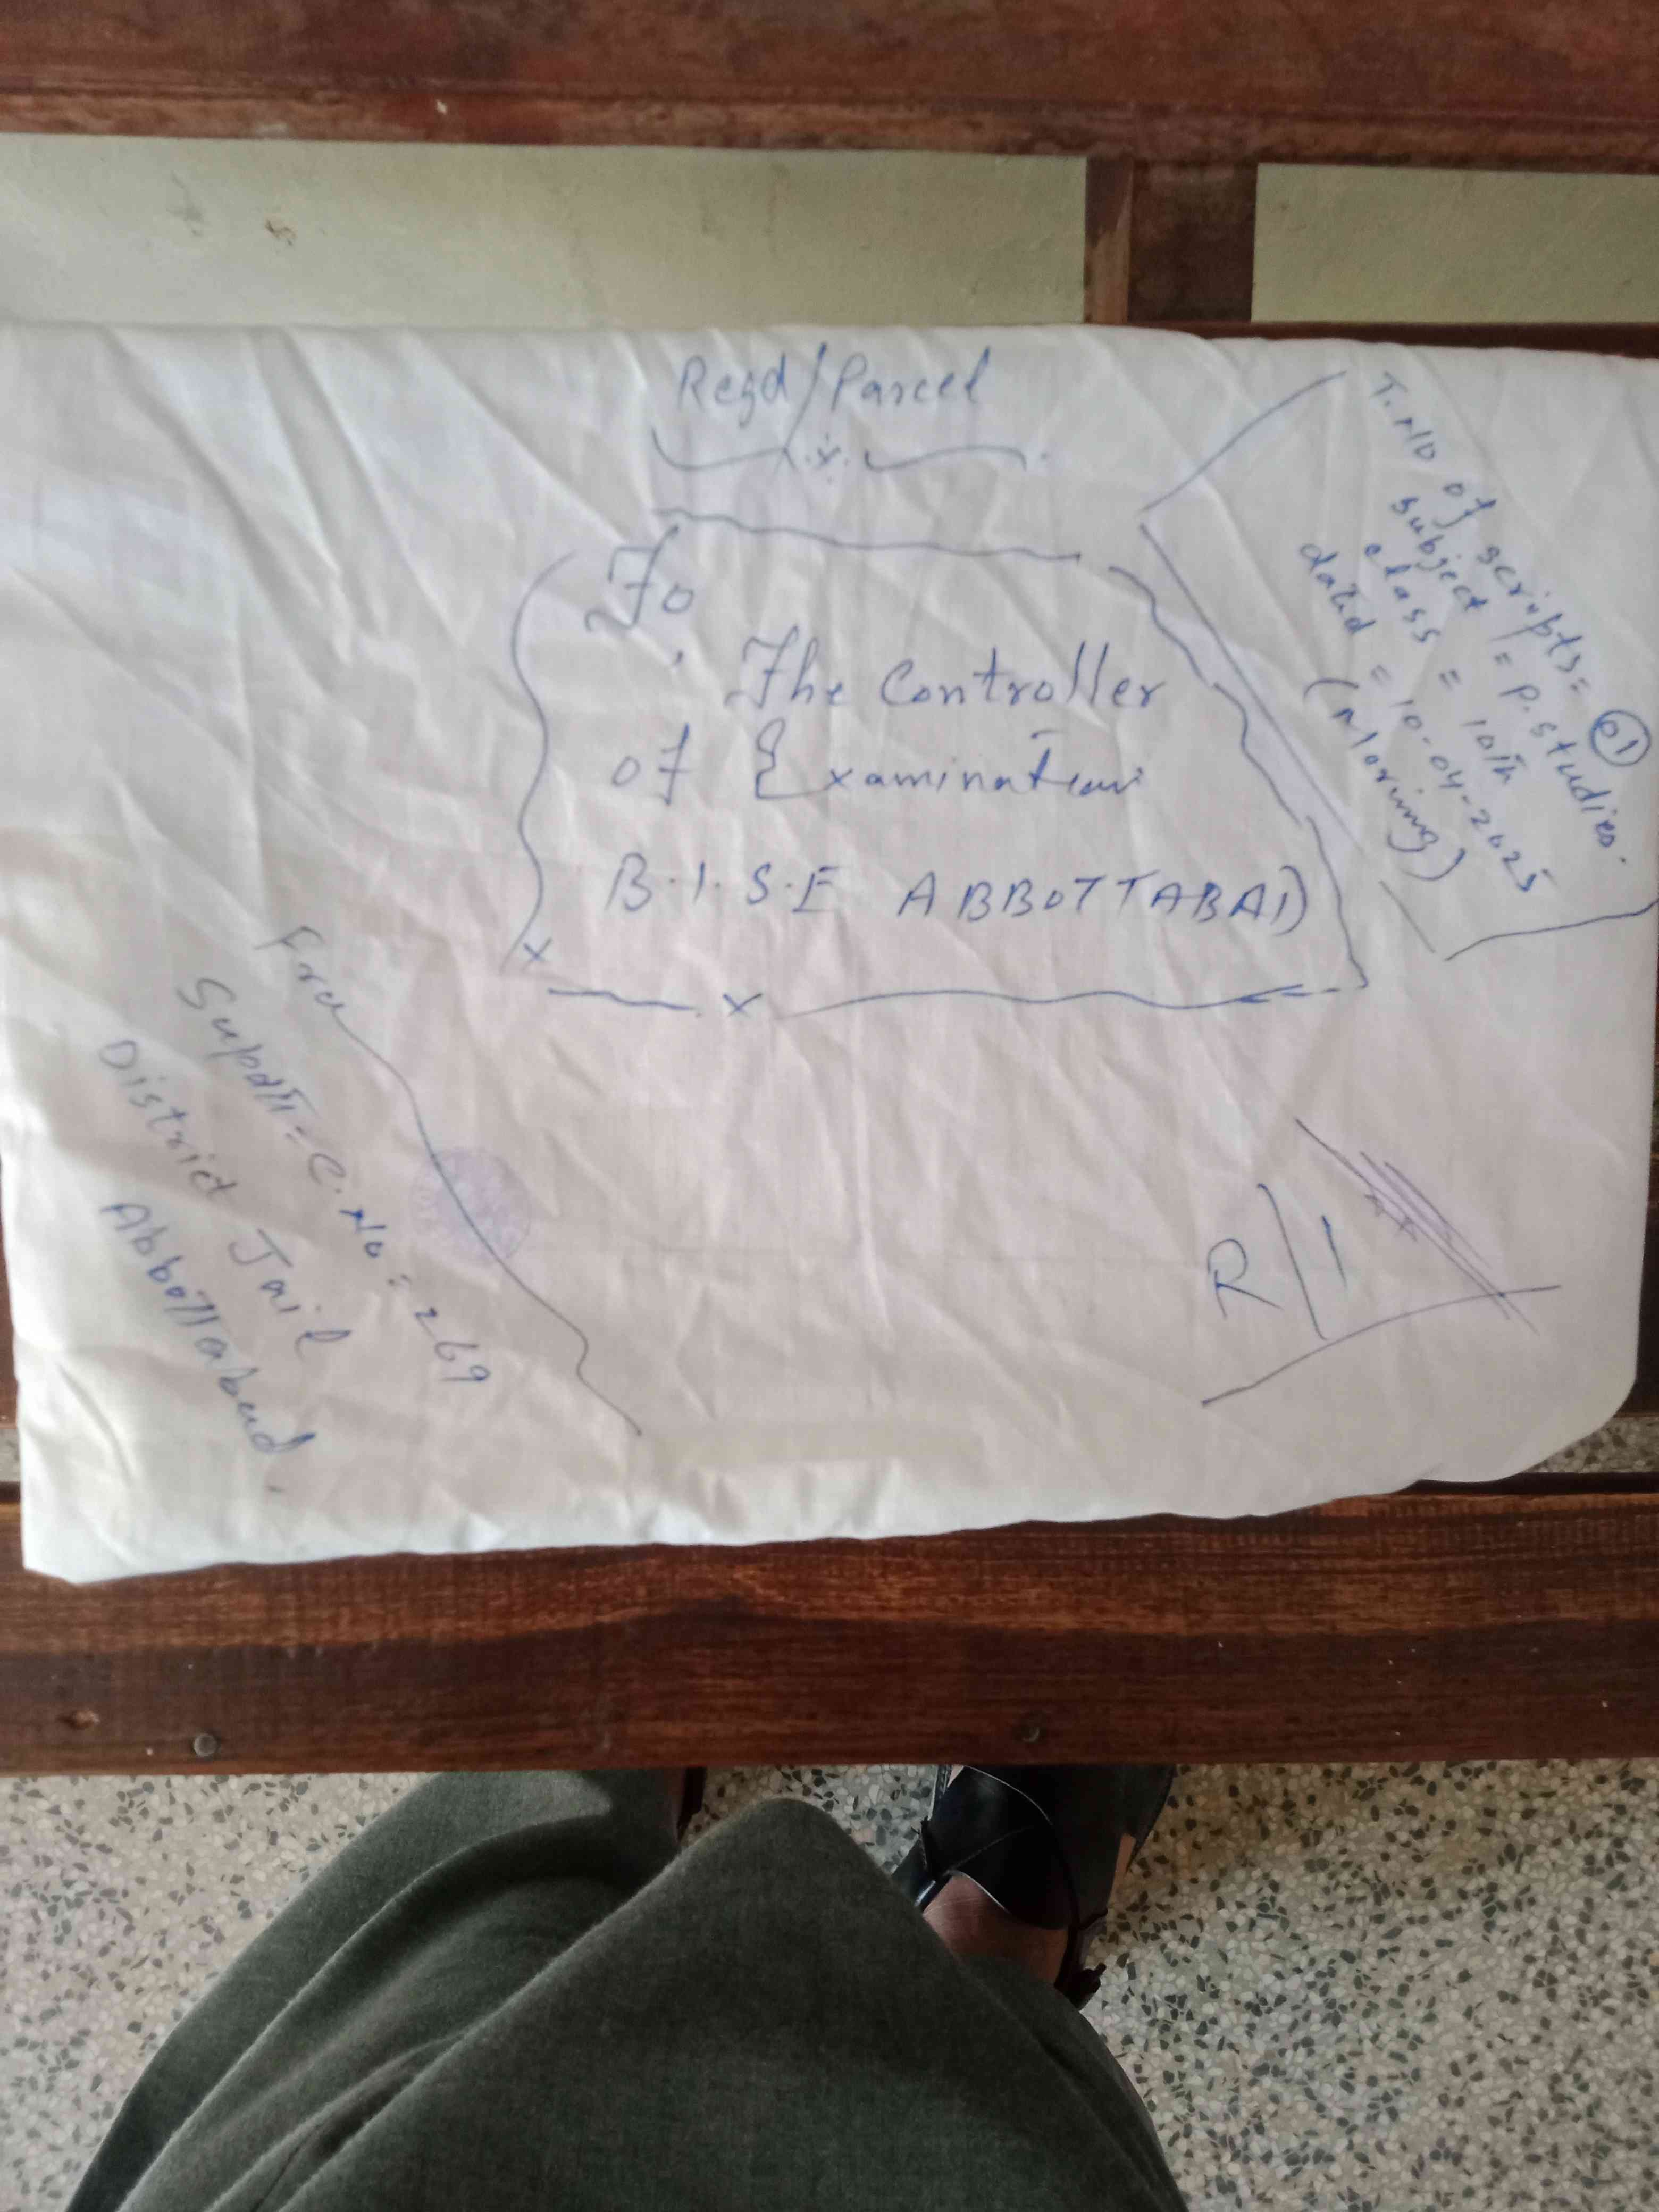 Regd/Parcel
T. No of scripts = 01
subject = P. studies.
class = 10th
dated = 10-04-2025
(Morning)
To,
The Controller
of Examination
B.I.S.E ABBOTTABAD
From
Supdtt: C. No: 269
District Jail
Abbottabad.
R/I